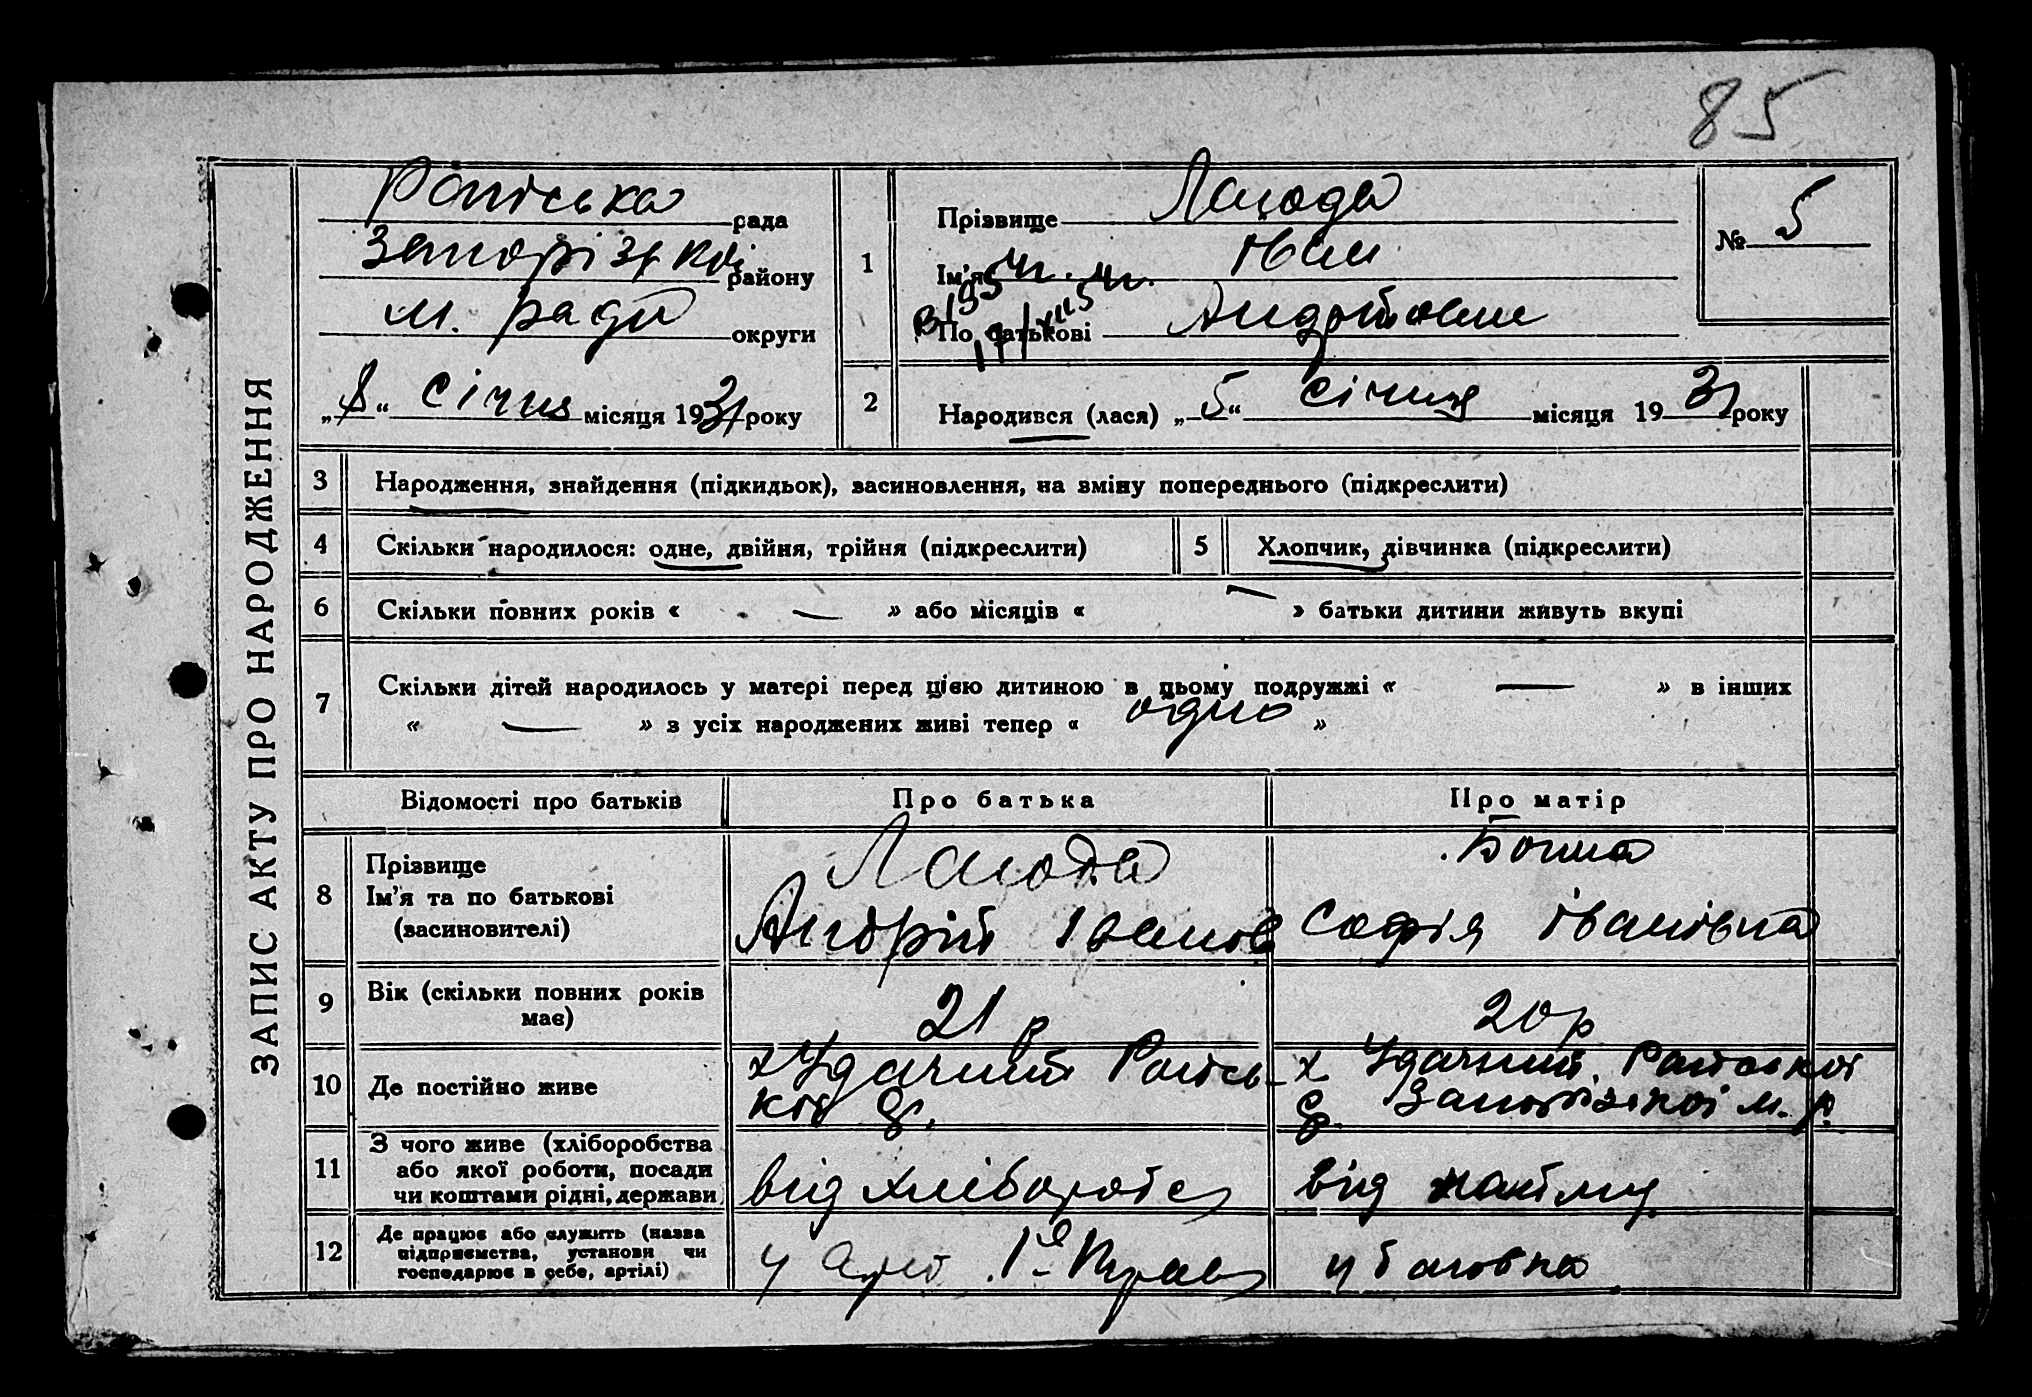 85
ЗАПИС АКТУ ПРО НАРОДЖЕННЯ
рада
Запорізької району
м. ради округи
„8“ січня місяця 1931 року
1
Прізвище Лагода
Ім'я Іван
По батькові Андрійович
№ 5
2
Народився (лася) „5“ січня місяця 1931 року
3 Народження, знайдення (підкидьок), засиновлення, на зміну попереднього (підкреслити)
4 Скільки народилося: одне, двійня, трійня (підкреслити)
5 Хлопчик, дівчинка (підкреслити)
6 Скільки повних років « — » або місяців « — » батьки дитини живуть вкупі
7 Скільки дітей народилось у матері перед цією дитиною в цьому подружжі « — » в інших
« — » з усіх народжених живі тепер « одно »
Відомості про батьків
Про батька
Про матір
8
Прізвище
Ім'я та по батькові
(засиновителі)
Лагода
Андрій Іванов
Софія Іванівна
9
Вік (скільки повних років
має)
21 р
20 р
10 Де постійно живе
х Удачний
х Удачний
Запорізької м. р.
11
З чого живе (хліборобства
або якої роботи, посади
чи коштами рідні, держави
від хліборобс
від
12
Де працює або служить (назва
підприємства, установи чи
господарює в себе, артілі)
у
у